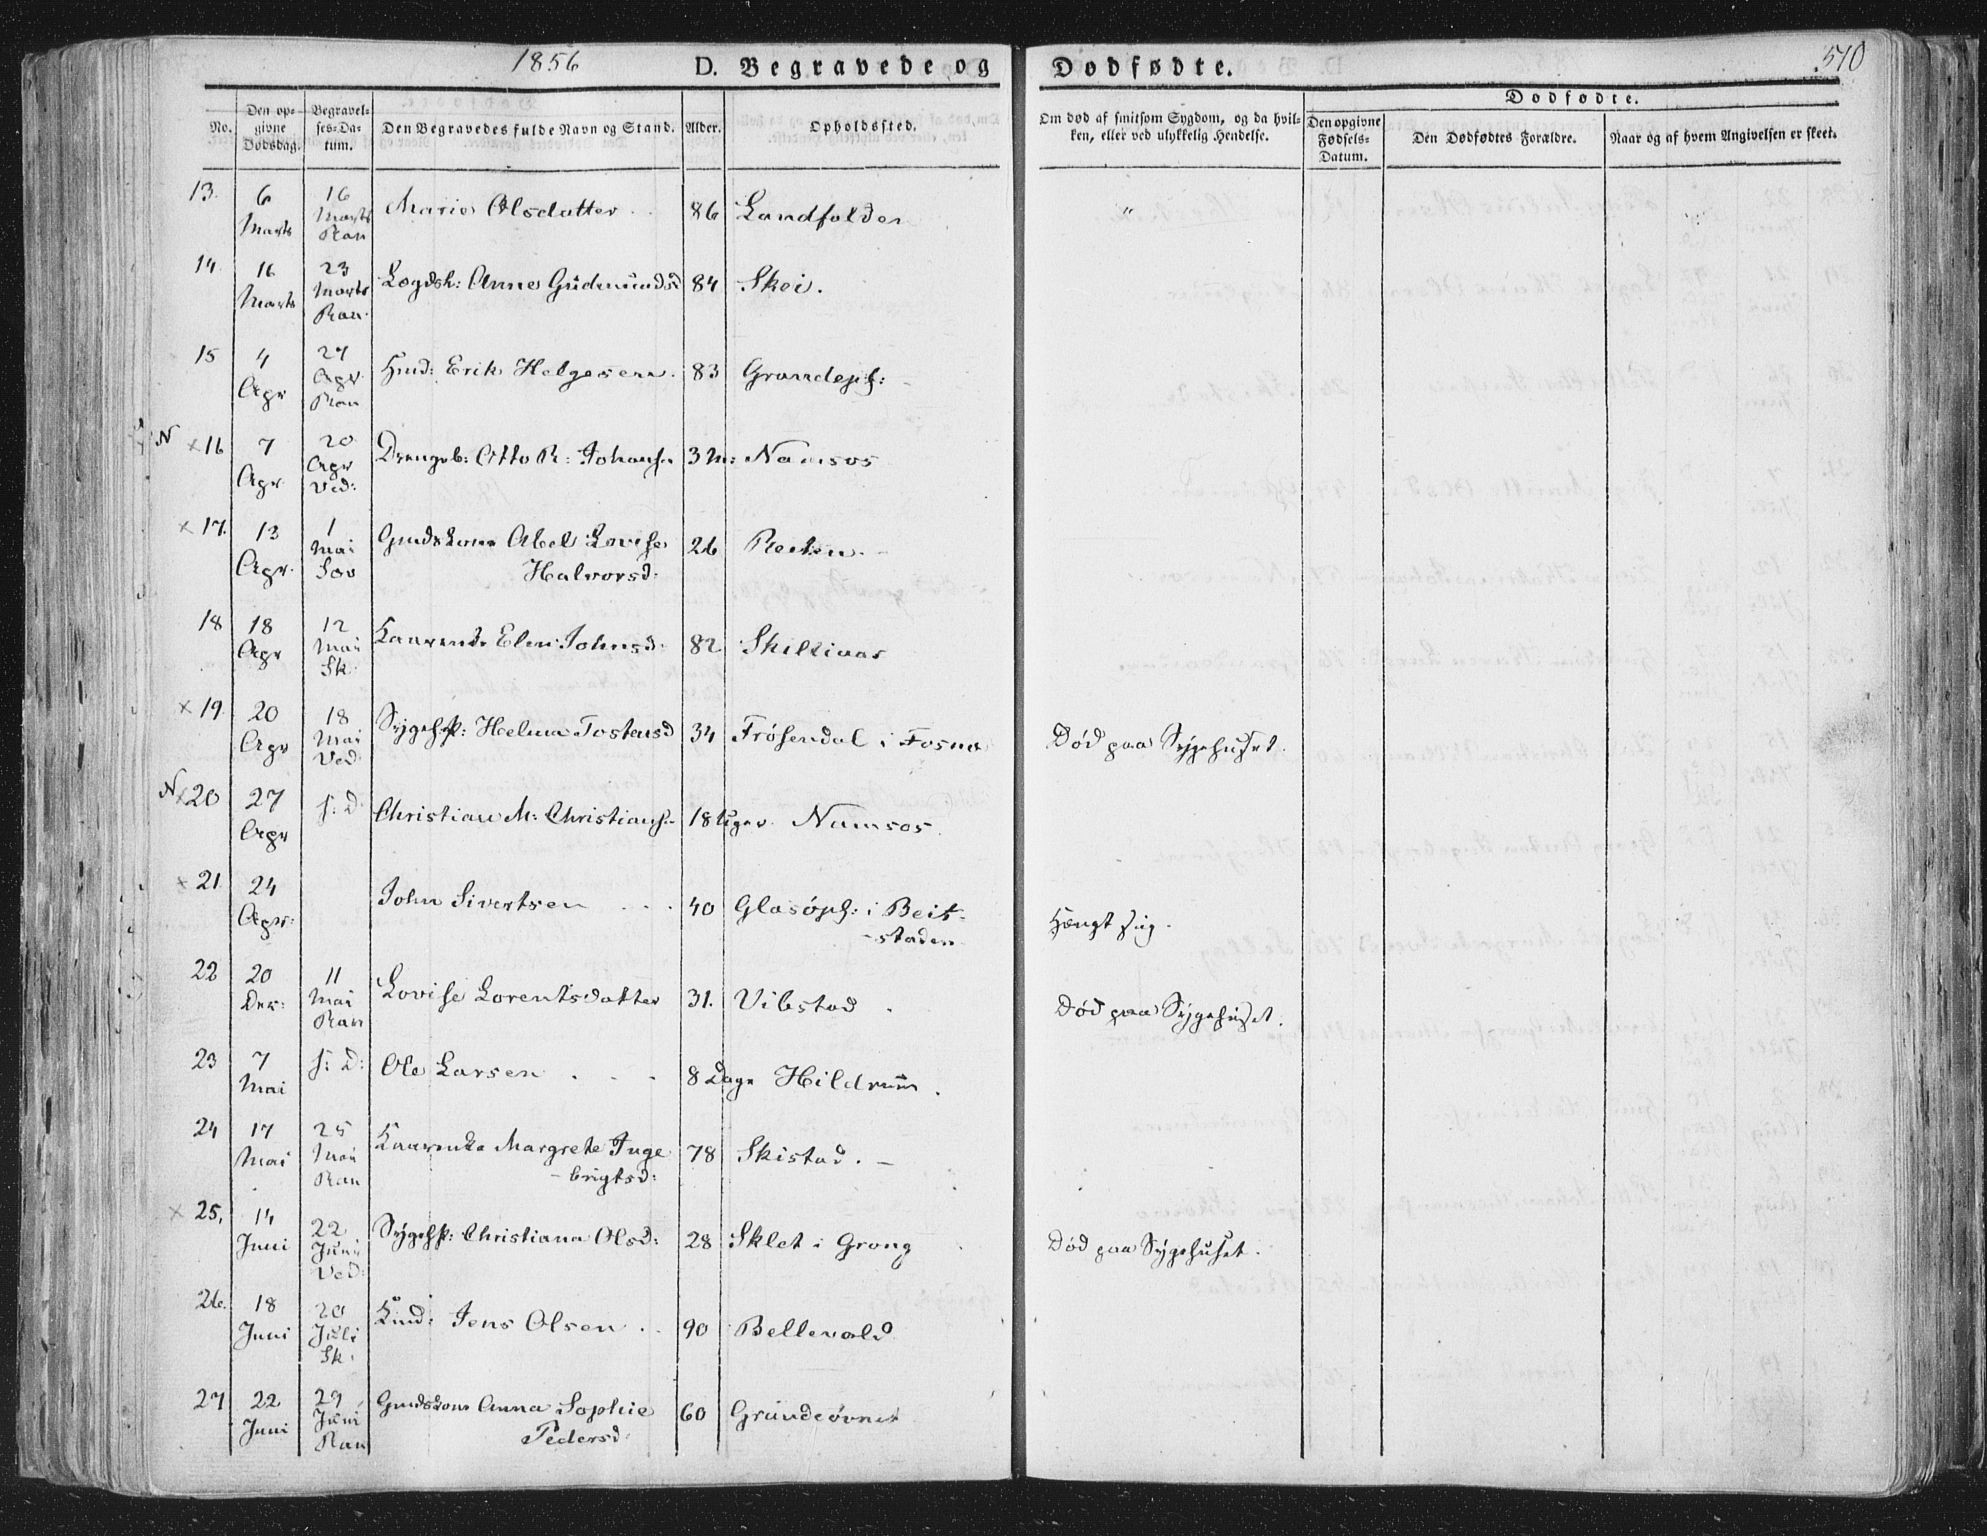 1856
D. Begravede og Dødfødte.
510
Dødfødte.
No.
Den opgivne Dødsdag.
Begravelses-Datum.
Den Begravedes fulde Navn og Stand.
Alder.
Opholdssted.
Om død af smitsom Sygdom, og da hvilken, eller ved ulykkelig Hendelse.
Den opgivne Fødsels-Datum.
Den Dødfødtes Forældre.
Naar og af hvem Angivelsen er skeet.
13. 6 Marts 16 Marts Ran Marie Olsdatter 86 Landfalden "
14. 16 Marts 23 Marts Ran Anne Gudmundsd 84 Skei.
15 4 Apr 27 Apr Ran Erik Helgesen 83
N ×16 7 Apr 20 Apr Ved: Drengeb: Otto R: Johans. 3 M: Namsos
×17. 13 Apr. 1 Mai Sav Abel Lovise Halvorsd: 26
18 18 Apr 12 Mai Sk. Elen Johnsd. 82
×19. 20 Apr 18 Mai Ved: Tostensd 34 Frøsendal i Fosnæs Død paa Sygehuset.
N ×20 27 Apr f: D: Christian M: Christians. 18 Uger. Namsos.
×21. 24 Apr: John Sivertsen 40 i Beit-
staden Hængt sig.
22 20 Dec: 11 Mai Ran Lovise Lorentsdatter 31. Vibstad. Død paa Sygehuset.
23 7 Mai f: D: Ole Larsen 8 Dage Hildrum.
24 17 Mai 25 Mai Ran Margrete Inge-
brigtsd: 78 Skistad.
×25. 14 Juni 22 Juni Ved: Christiana Olsd: 28 Sklet i Grong Død paa Sygehuset.
26. 18 Juni 20 Juli Sk. Jens Olsen 90
27 22 Juni 29 Juni Ran Anna Sophie
Pedersd. 60